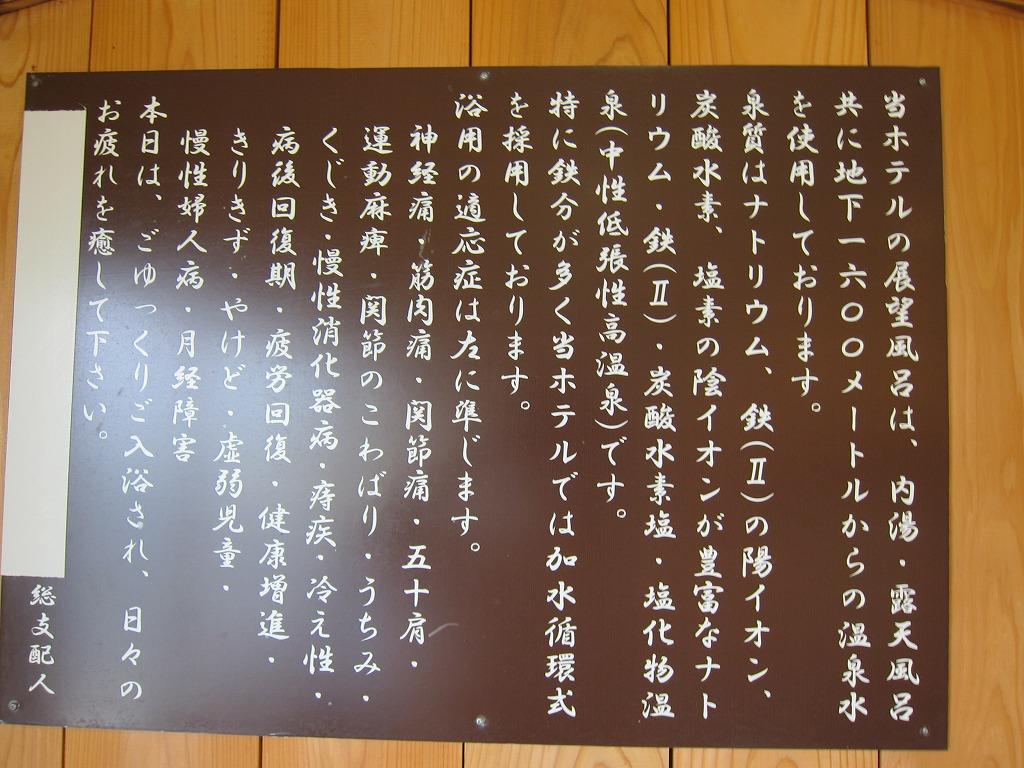 当ホテルの展望風呂は、内湯・露天風呂
共に地下一六〇〇メートルからの温泉水
を使用しております。
泉質はナトリウム、鉄(Ⅱ)の陽イオン、
炭酸水素、塩素の陰イオンが豊富なナト
リウム・鉄(Ⅱ)・炭酸水素塩・塩化物温
泉(中性低張性高温泉)です。
特に鉄分が多く当ホテルでは加水循環式
を採用しております。
浴用の適応症は左に準じます。
神経痛・筋肉痛・関節痛・五十肩・
運動麻痺・関節のこわばり・うちみ・
くじき・慢性消化器病・痔疾・冷え性・
病後回復期・疲労回復・健康増進・
きりきず・やけど・虚弱児童・
慢性婦人病・月経障害
本日は、ごゆっくりご入浴され、日々の
お疲れを癒して下さい。
総支配人